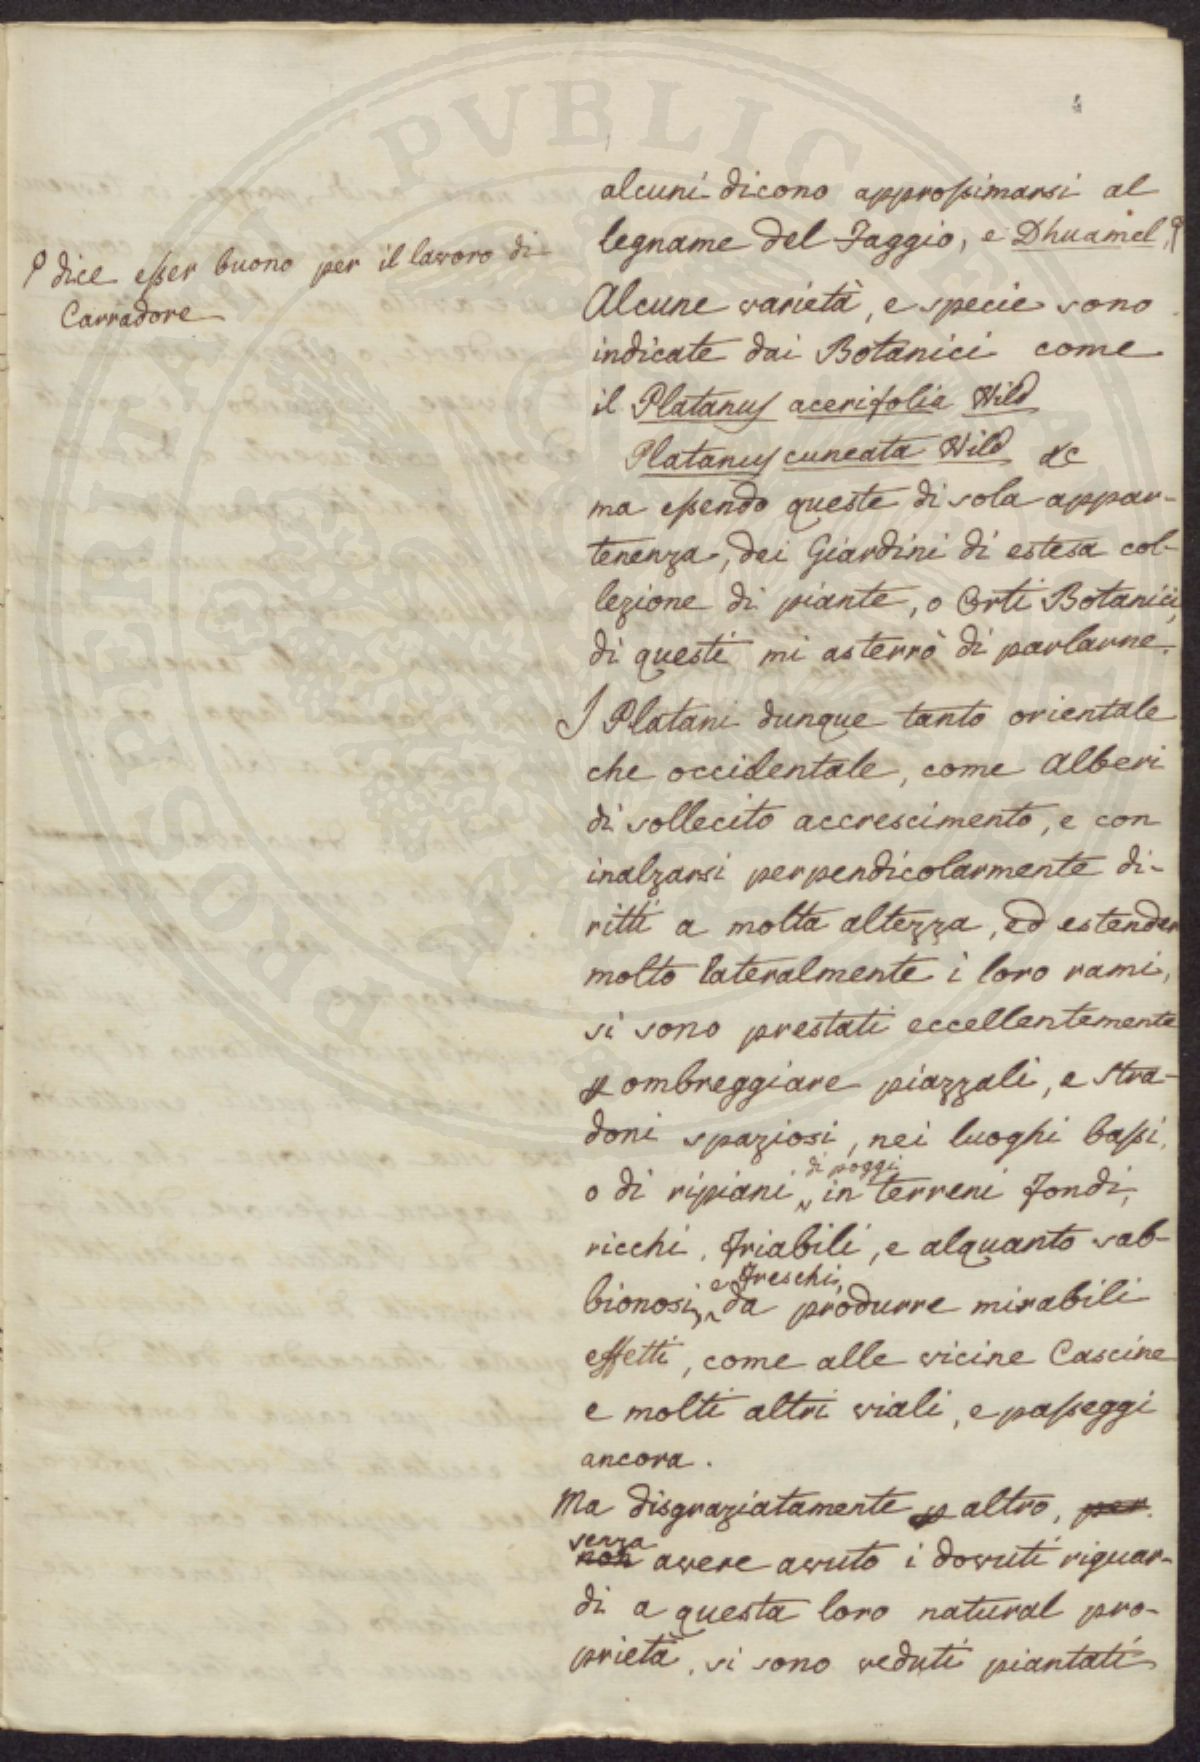 alcuni dicono approssimarsi al
legname del Faggio, e Dhuamel,
dice esser buono per il lavoro di
Carradore
Alcune varietà, e specie sono
indicate dai Botanici come
il Platanus acerifolia Wild
Platanus cuneata Wild &c
ma essendo queste di sola appar-
tenenza, dei Giardini di estesa col-
lezione di piante, o Orti Botanici,
di questi mi asterrò di parlarne.
I Platani dunque tanto orientale
che occidentale, come Alberi
di sollecito accrescimento, e con
inalzarsi perpendicolarmente di-
ritti a molta altezza, ed estender
molto lateralmente i loro rami,
si sono prestati eccellentemente
p ombreggiare piazzali, e stra-
doni spaziosi, nei luoghi bassi,
o di ripiani di poggi in terreni fondi,
ricchi, friabili, e alquanto sab-
bionosi, e freschi, da produrre mirabili
effetti, come alle vicine Cascine
e molti altri viali, e passeggi
ancora.
Ma disgraziatamente p altro, per
senza
non avere avuto i dovuti riguar-
di a questa loro natural pro-
prietà, si sono veduti piantati
PROSPERITATI PUBLICAE